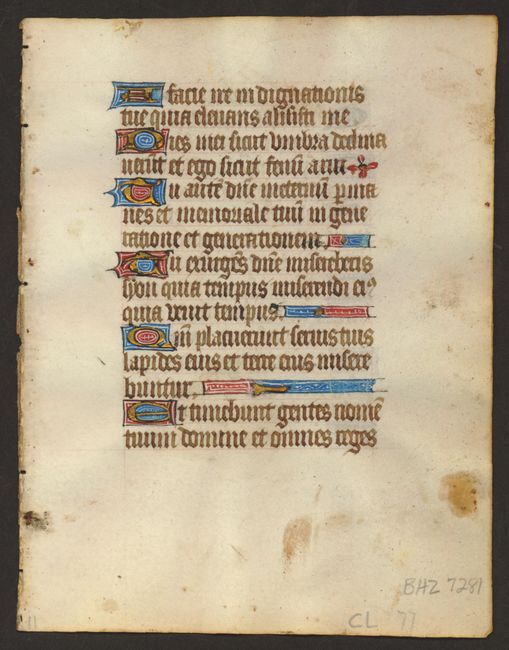 A facie ire indignationis
tue quia eleuans allisisti me
Dies mei sicut vmbra declina
uerūt et ego sicut fenū arui
Tu autē dn̄e ineternū ꝑma
nes et memoriale tuū in gene
ratione et generationem.
Tu exurgēs dn̄e misereberis
syon quia tempus miserendi eiꝰ
quia venit tempus.
Qm̄ placuerūt seruis tuis
lapides eius et terre eius misere
buntur.
Et timebunt gentes nomē
tuum domine et omnes reges
BHZ 7281
CL 77